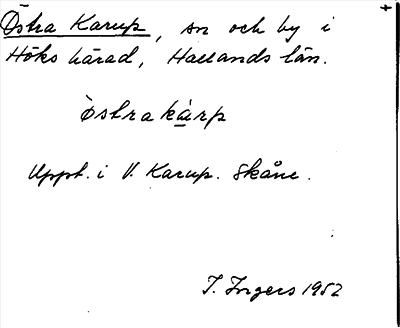 Östra Karup, sn och by i
Höks härad, Hallands län.
östra kàrp
Uppt. i V. Karup. Skåne.
I. Ingers 1952